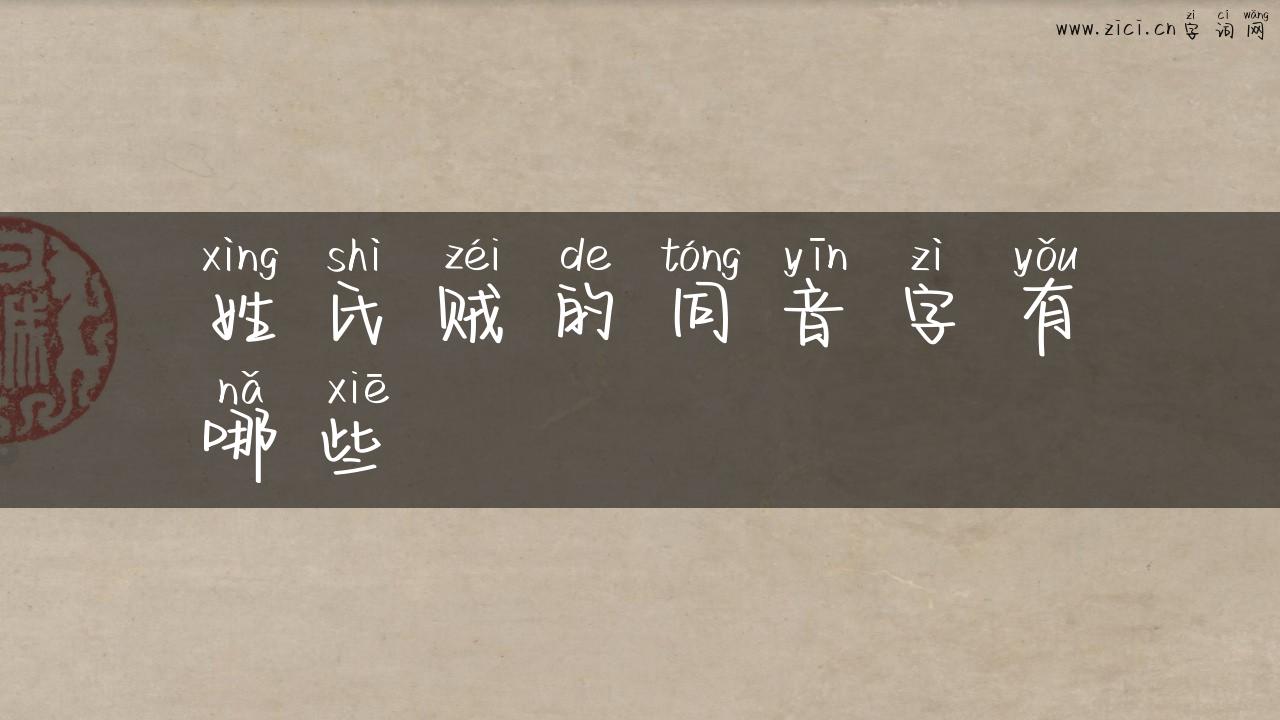 zì cí wǎng
www.zici.cn 字 词 网
xìng shì zéi de tóng yīn zì yǒu
姓 氏 贼 的 同 音 字 有
nǎ xiē
哪 些